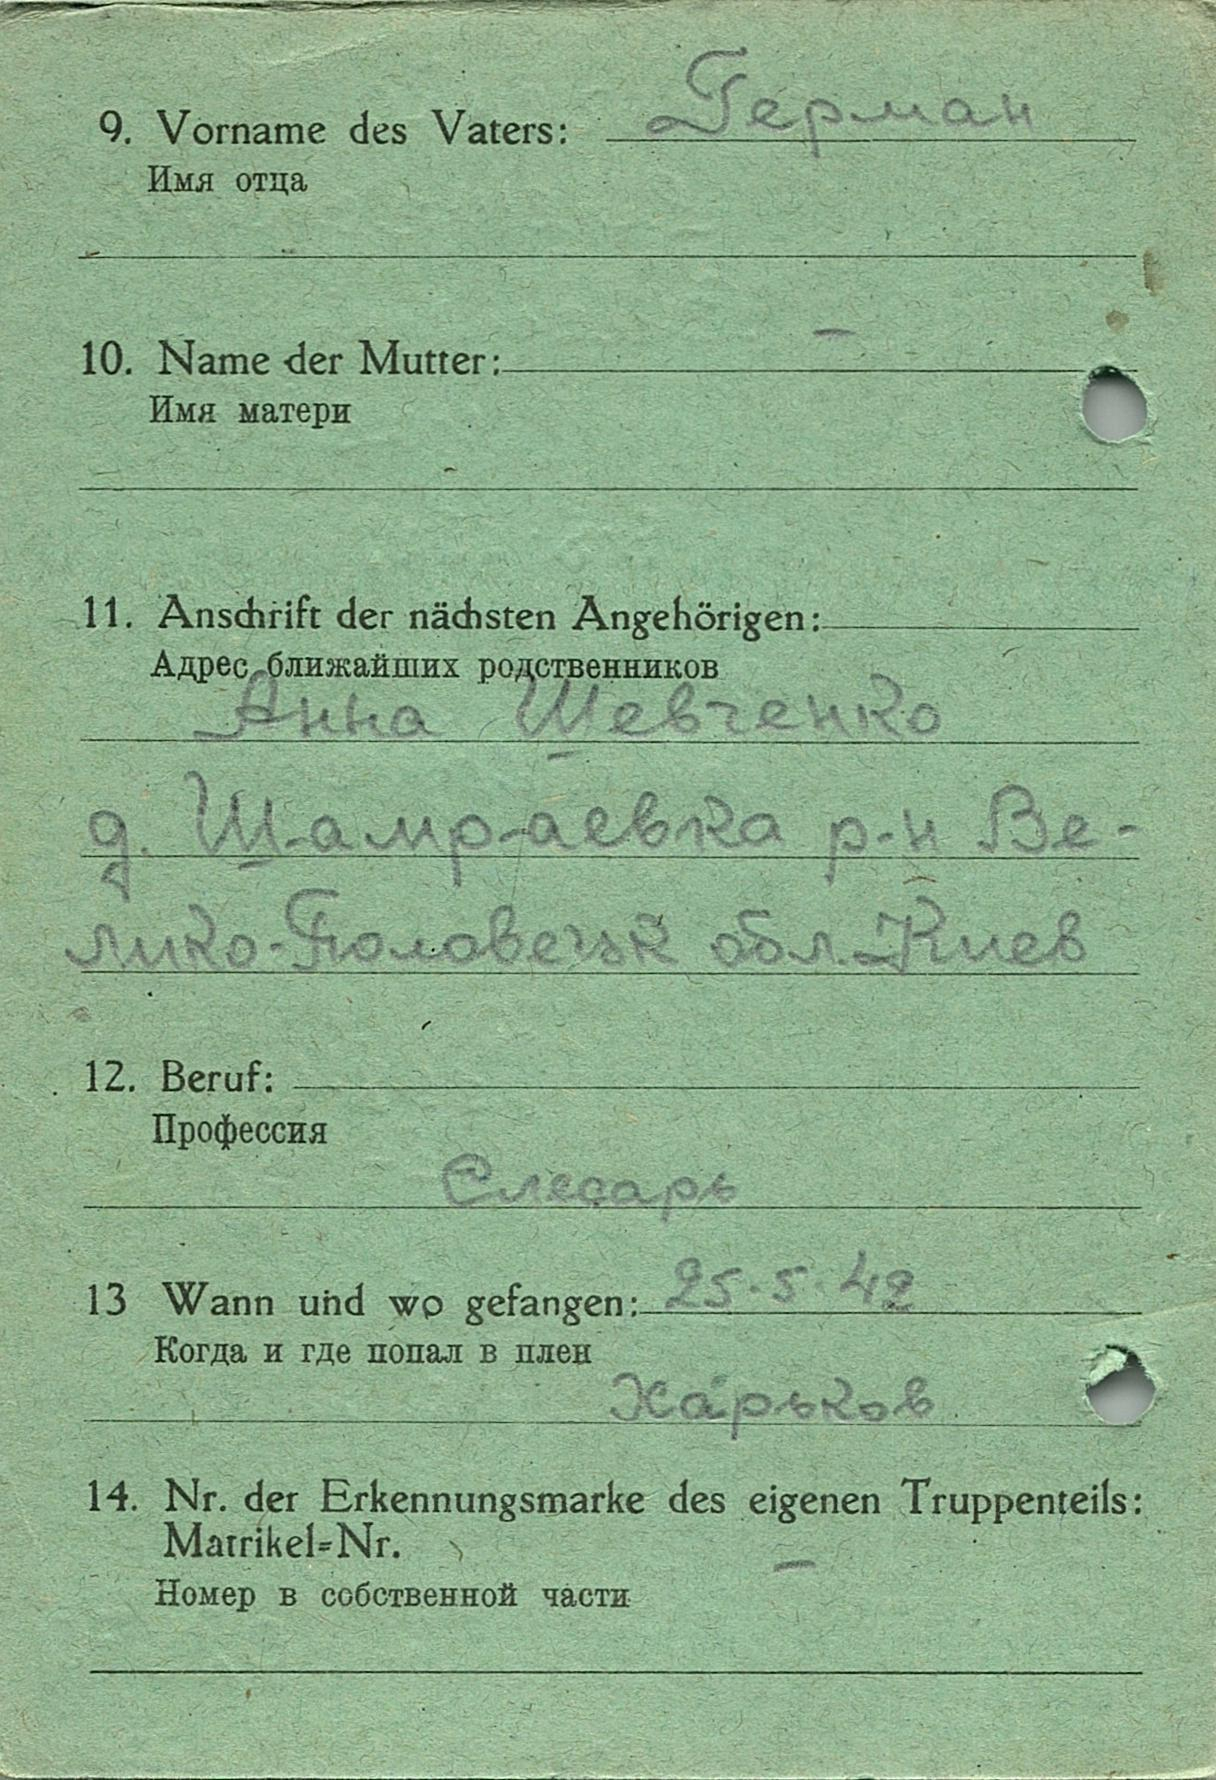 9. Vorname des Vaters: Герман
Имя отца
10. Name der Mutter: –
Имя матери
11. Anschrift der nächsten Angehörigen:
Адрес ближайших родственников
Анна Шевченко
д. Шамраевка р-н Ве-
лико-Половечьк обл. Киев
12. Beruf:
Профессия
Слесарь
13 Wann und wo gefangen: 25.5.42
Когда и где попал в плен
Харьков
14. Nr. der Erkennungsmarke des eigenen Truppenteils:
Matrikel=Nr. –
Номер в собственной части